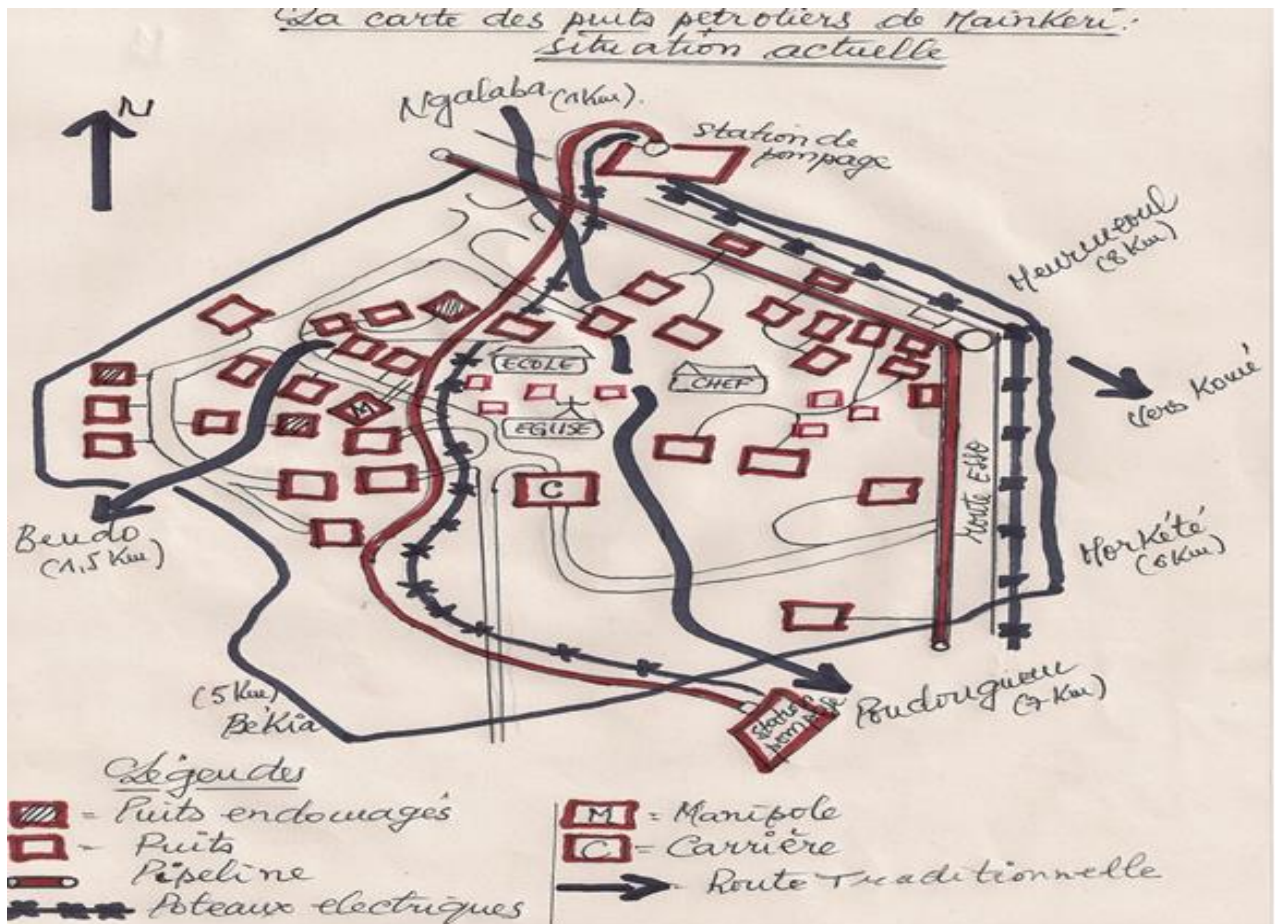 La carte des puits pétroliers de Mainkeri:
situation actuelle
N
Ngalaba (1Km).
Station de
pompage
Meurmeoul
(8Km)
Vers Komé
ECOLE
CHEF
M
EGLISE
C
Route ESSO
Bendo
(1,5 Km)
Morkété
(6Km)
(5Km)
Békia
Station
pompage
Poudouguem
(7 Km)
Légendes
= Puits endomagés
- Puits
Pipeline
Poteaux electriques
M = Manipole
C = Carrière
Route Traditionnelle